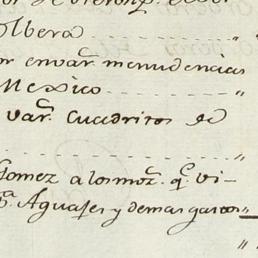 Olbera
or envar. menudencias
Mexico
var. cuadritos de
Gomez a los moz. q. vi-
Aguajes y demas gastos